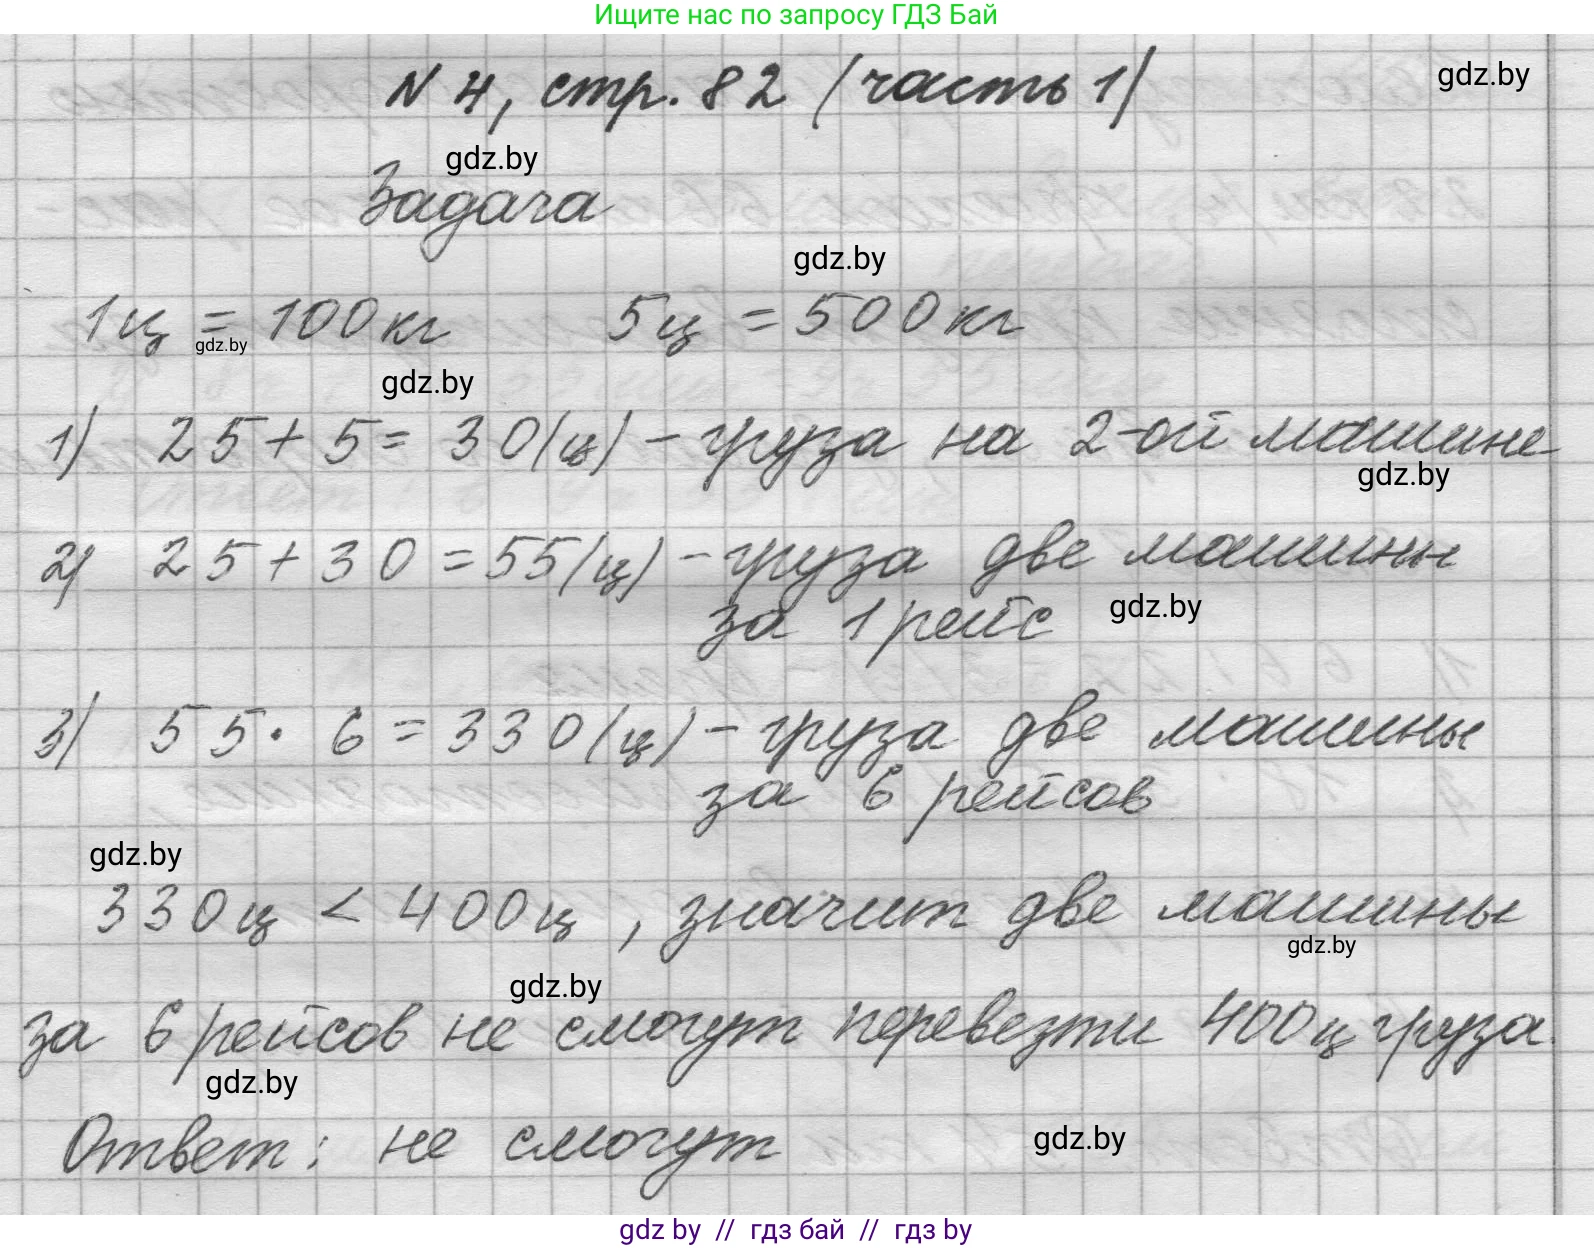 Ищите нас по запросу ГДЗ Бай
N 4, стр. 82 (часть 1)
gdz.by
gdz.by
Задача
gdz.by
1ц = 100 кг 5ц = 500 кг
gdz.by
gdz.by
1) 25 + 5 = 30 (ц) - груза на 2-ой машине
gdz.by
2) 25 + 30 = 55 (ц) - груза две машины
за 1 рейс
gdz.by
3) 55 · 6 = 330 (ц) - груза две машины
за 6 рейсов
gdz.by
330 ц < 400 ц, значит две машины
gdz.by
gdz.by
за 6 рейсов не смогут перевезти 400 ц груза.
gdz.by
Ответ: не смогут
gdz.by
gdz by // гдз бай // гдз by